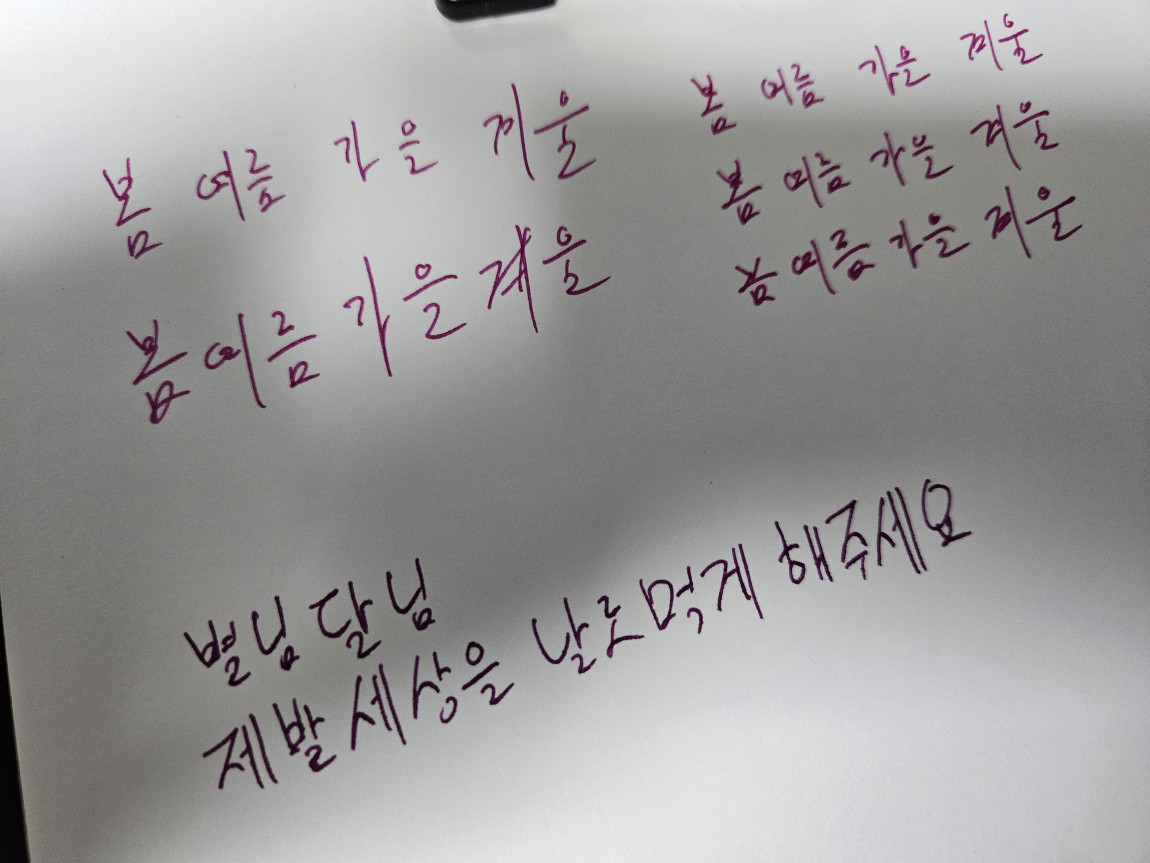 봄 여름 가을 겨울
봄 여름 가을 겨울
봄 여름 가을 겨울
봄 여름 가을 겨울
봄 여름 가을 겨울
별님달님
제발 세상을 날로먹게 해주세요